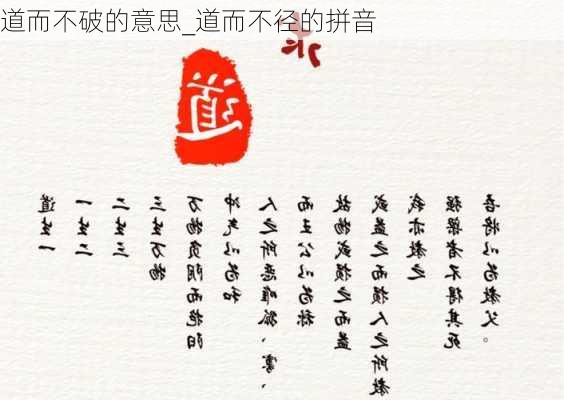 道而不破的意思_道而不径的拼音
道
道生一
一生二
二生三
三生万物
万物负阴而抱阳
冲气以为和
人之所恶唯孤、寡、
而王公以为称
故物或损之而益
或益之而损人之所教
我亦教之
强梁者不得其死
吾将以为教父。